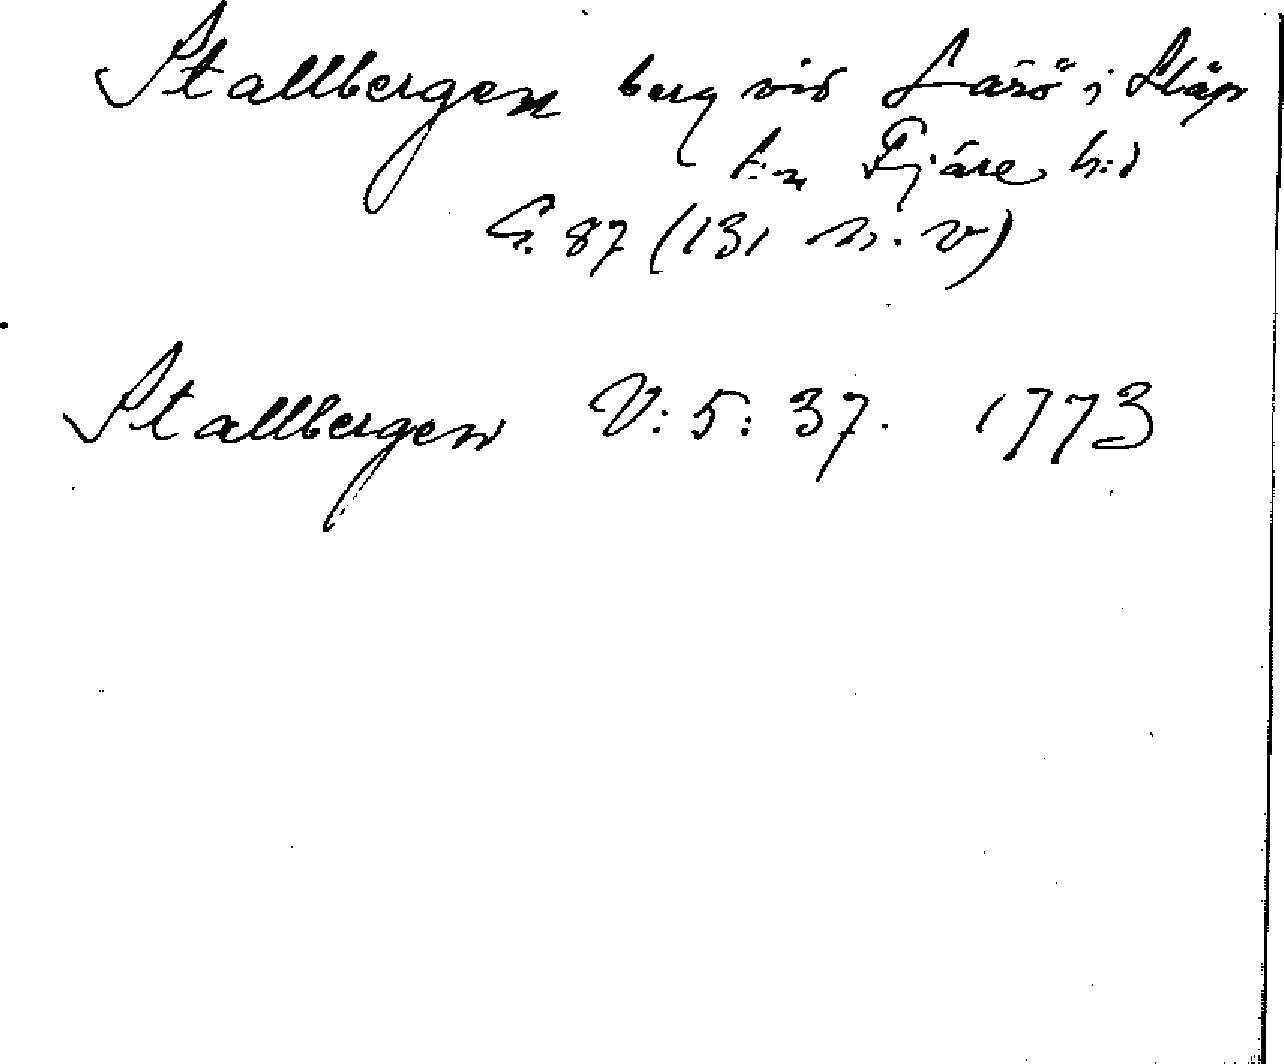 Stallbergen berg vid Särö i Släp
s:n Fjäre h:d
G. 87 (131 n. v)
Stallbergen V: 5: 37. 1773